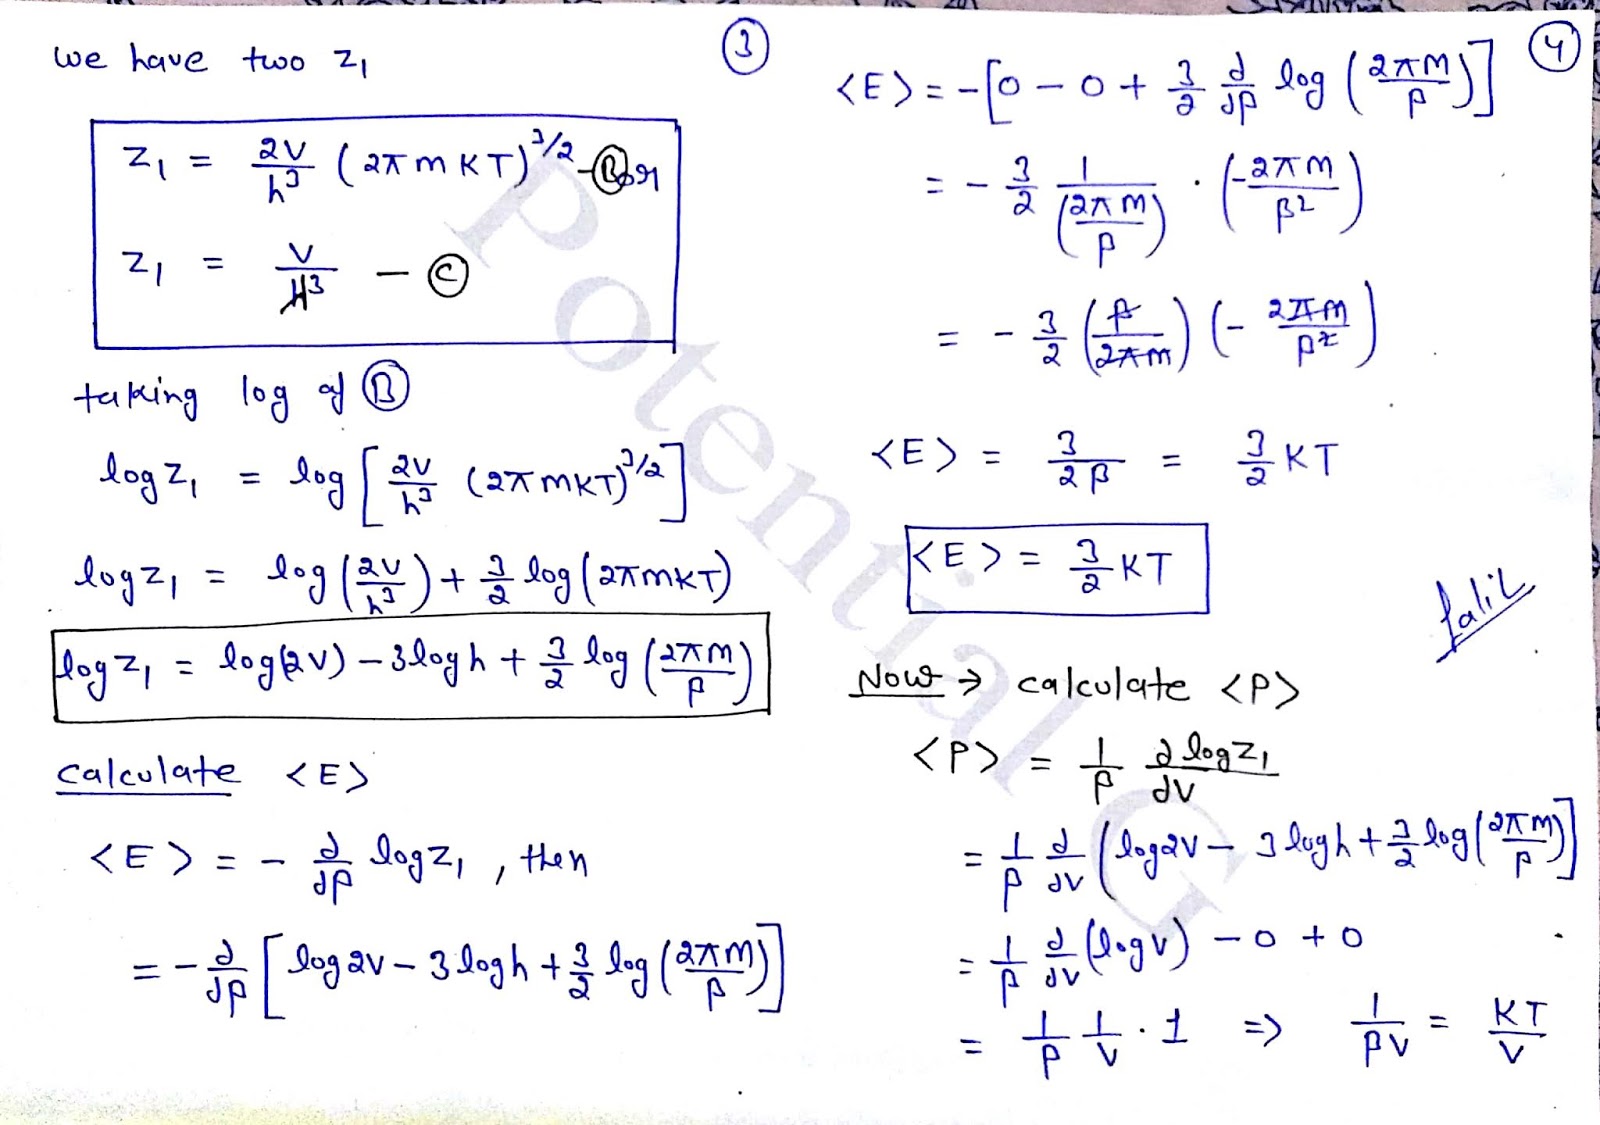 ③
we have two z₁
z₁ = 2V/h³ (2πmKT)^3/2 - Ⓑ or
z₁ = V/λ³ - Ⓒ
taking log of Ⓑ
log z₁ = log [2V/h³ (2πmKT)^3/2]
log z₁ = log (2V/h³) + 3/2 log (2πmKT)
log z₁ = log(2V) - 3logh + 3/2 log (2πm/β)
calculate <E>
<E> = - ∂/∂β log z₁, then
= - ∂/∂β [log2V - 3logh + 3/2 log (2πm/β)]
④
<E> = -[0 - 0 + 3/2 ∂/∂β log (2πm/β)]
= - 3/2 1/(2πm/β) · (-2πm/β²)
= - 3/2 (β/2πm) (- 2πm/β²)
<E> = 3/2β = 3/2 KT
<E> = 3/2 KT
Now → calculate <P>
<P> = 1/β ∂logz₁/∂V
= 1/β ∂/∂V (log2V - 3logh + 3/2 log(2πm/β)]
= 1/β ∂/∂V (logV) - 0 + 0
= 1/β 1/V · 1 ⇒ 1/βV = KT/V
Potential G